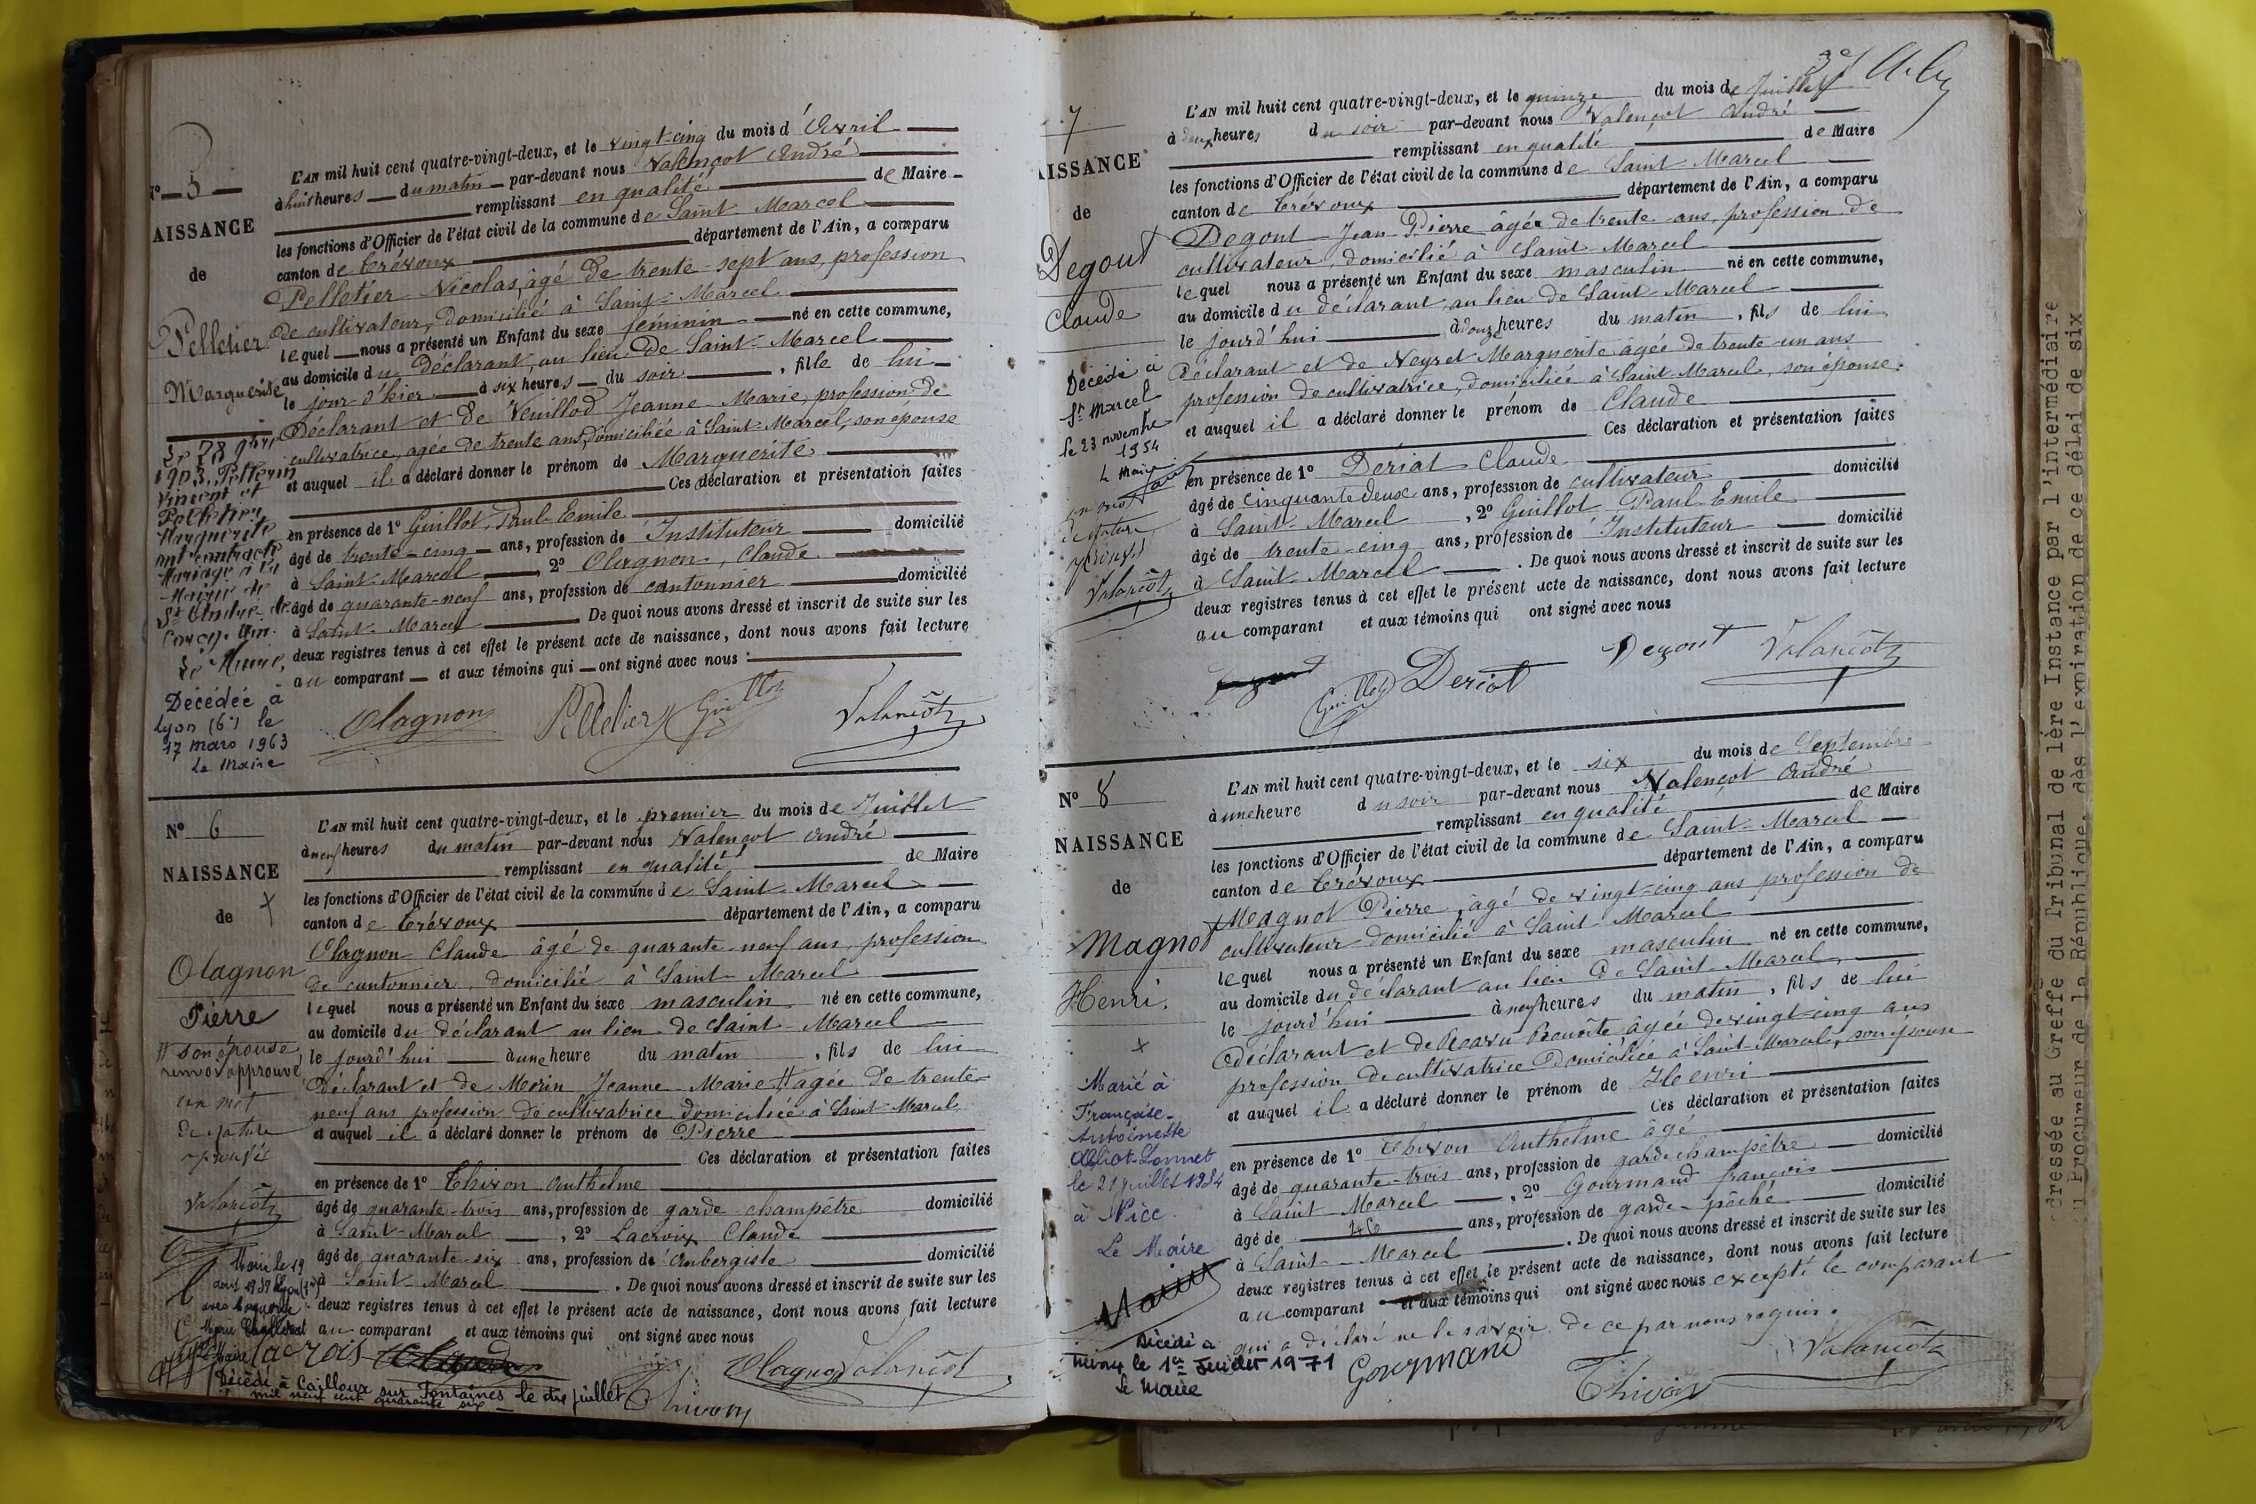 N° 5
NAISSANCE
de
Pelletier
Marguerite
Le 28 9bre
1903, Pelletier
Vincent et
Pelletier
Marguerite
ont contracté
Mariage à la
Mairie de
St André de
Corcy. Ain.
Le Maire,
Décédée à
Lyon (6e) le
17 mars 1963
Le Maire
L'AN mil huit cent quatre-vingt-deux, et le vingt-cinq du mois d'Avril
à huit heures du matin par-devant nous Valençot André
remplissant en qualité de Maire
les fonctions d'Officier de l'état civil de la commune de Saint-Marcel
canton de Trévoux département de l'Ain, a comparu
Pelletier Nicolas, âgé de trente-sept ans, profession
de cultivateur, domicilié à Saint-Marcel
lequel nous a présenté un Enfant du sexe féminin né en cette commune,
au domicile du Déclarant, au lieu de Saint-Marcel
le jour d'hier à six heures du soir, fille de lui
Déclarant et de Veuillod Jeanne Marie, profession de
cultivatrice, agée de trente ans, domiciliée à Saint-Marcel, son épouse
et auquel il a déclaré donner le prénom de Marguerite
Ces déclaration et présentation faites
en présence de 1° Guillot, Paul-Emile
âgé de trente-cinq ans, profession de Instituteur domicilié
à Saint-Marcel, 2° Olagnon, Claude
âgé de quarante-neuf ans, profession de cantonnier domicilié
à Saint-Marcel De quoi nous avons dressé et inscrit de suite sur les
deux registres tenus à cet effet le présent acte de naissance, dont nous avons fait lecture
au comparant et aux témoins qui ont signé avec nous
Olagnon Pelletier Guillot Valançôt
N° 6
NAISSANCE
de
Olagnon
Pierre
# son épouse
renvoi approuvé
un mot
de rature
approuvé
Valancôt
L'AN mil huit cent quatre-vingt-deux, et le premier du mois de Juillet
à neuf heures du matin par-devant nous Valençot André
remplissant en qualité de Maire
les fonctions d'Officier de l'état civil de la commune de Saint-Marcel
canton de Trévoux département de l'Ain, a comparu
Olagnon Claude âgé de quarante-neuf ans, profession
de cantonnier, domicilié à Saint-Marcel
lequel nous a présenté un Enfant du sexe masculin né en cette commune,
au domicile du déclarant au lieu de Saint-Marcel
le jourd'hui à une heure du matin, fils de lui
Déclarant et de Morin Jeanne-Marie # agée de trente-
neuf ans profession de cultivatrice domiciliée à Saint-Marcel
et auquel il a déclaré donner le prénom de Pierre
Ces déclaration et présentation faites
en présence de 1° Thivon Anthelme
âgé de quarante-trois ans, profession de garde-champêtre domicilié
à Saint-Marcel, 2° Lacroix Claude
âgé de quarante-six ans, profession de Aubergiste domicilié
à Saint-Marcel. De quoi nous avons dressé et inscrit de suite sur les
deux registres tenus à cet effet le présent acte de naissance, dont nous avons fait lecture
au comparant et aux témoins qui ont signé avec nous
Lacroix Olagnon Valançôt
Thivon
Décédé à Cailloux sur Fontaines le dix juillet
mil neuf cent quarante six
7
NAISSANCE
de
Degout
Claude
Décédé à
St Marcel
le 23 novembre
1954
L Maire
un mot
de rature
Valancôt
L'AN mil huit cent quatre-vingt-deux, et le quinze du mois de Juillet
à deux heures du soir par-devant nous Valençot André
remplissant en qualité de Maire
les fonctions d'Officier de l'état civil de la commune de Saint-Marcel
canton de Trévoux département de l'Ain, a comparu
Degout Jean-Pierre âgé de trente ans, profession de
cultivateur, domicilié à Saint-Marcel
lequel nous a présenté un Enfant du sexe masculin né en cette commune,
au domicile du déclarant, au lieu de Saint-Marcel
le jourd'hui à onze heures du matin, fils de lui
Déclarant et de Neyret Marguerite âgée de trente-un ans
profession de cultivatrice, domiciliée à Saint-Marcel, son épouse.
et auquel il a déclaré donner le prénom de Claude
Ces déclaration et présentation faites
en présence de 1° Deriat Claude
âgé de cinquante deux ans, profession de cultivateur domicilié
à Saint-Marcel, 2° Guillot Paul-Emile
âgé de trente-cinq ans, profession de Instituteur domicilié
à Saint-Marcel. De quoi nous avons dressé et inscrit de suite sur les
deux registres tenus à cet effet le présent acte de naissance, dont nous avons fait lecture
au comparant et aux témoins qui ont signé avec nous
Guillot Deriat Degout Valancôt
N° 8
NAISSANCE
de
Magnot
Henri.
Marié à
Françoise-
Antoinette
le 21 juillet 1934
à Nice.
Le Maire
Décédé à
Thivoy le 1er Juillet 1971
Le Maire
L'AN mil huit cent quatre-vingt-deux, et le six du mois de Septembre
à une heure du soir par-devant nous Valençot André
remplissant en qualité de Maire
les fonctions d'Officier de l'état civil de la commune de Saint-Marcel
canton de Trévoux département de l'Ain, a comparu
Magnot Pierre, âgé de vingt-cinq ans profession de
cultivateur domicilié à Saint-Marcel
lequel nous a présenté un Enfant du sexe masculin né en cette commune,
au domicile du déclarant au lieu de Saint-Marcel,
le jourd'hui à neuf heures du matin, fils de lui
déclarant et de Benoîte âgée de vingt-cinq ans
profession de cultivatrice domiciliée à Saint-Marcel, son épouse
et auquel il a déclaré donner le prénom de Henri
Ces déclaration et présentation faites
en présence de 1° Thivon Anthelme âgé
âgé de quarante-trois ans, profession de garde champêtre domicilié
à Saint Marcel, 2° Gourmand François
âgé de 46 ans, profession de garde-pêche domicilié
à Saint-Marcel. De quoi nous avons dressé et inscrit de suite sur les
deux registres tenus à cet effet le présent acte de naissance, dont nous avons fait lecture
au comparant et aux témoins qui ont signé avec nous excepté le comparant
qui a déclaré ne le savoir de ce par nous requis.
Gourmand Thivon Valancôt
dressée au Greffe du Tribunal de 1ère Instance par l'intermédiaire
du Procureur de la République, dès l'expiration de ce délai de six